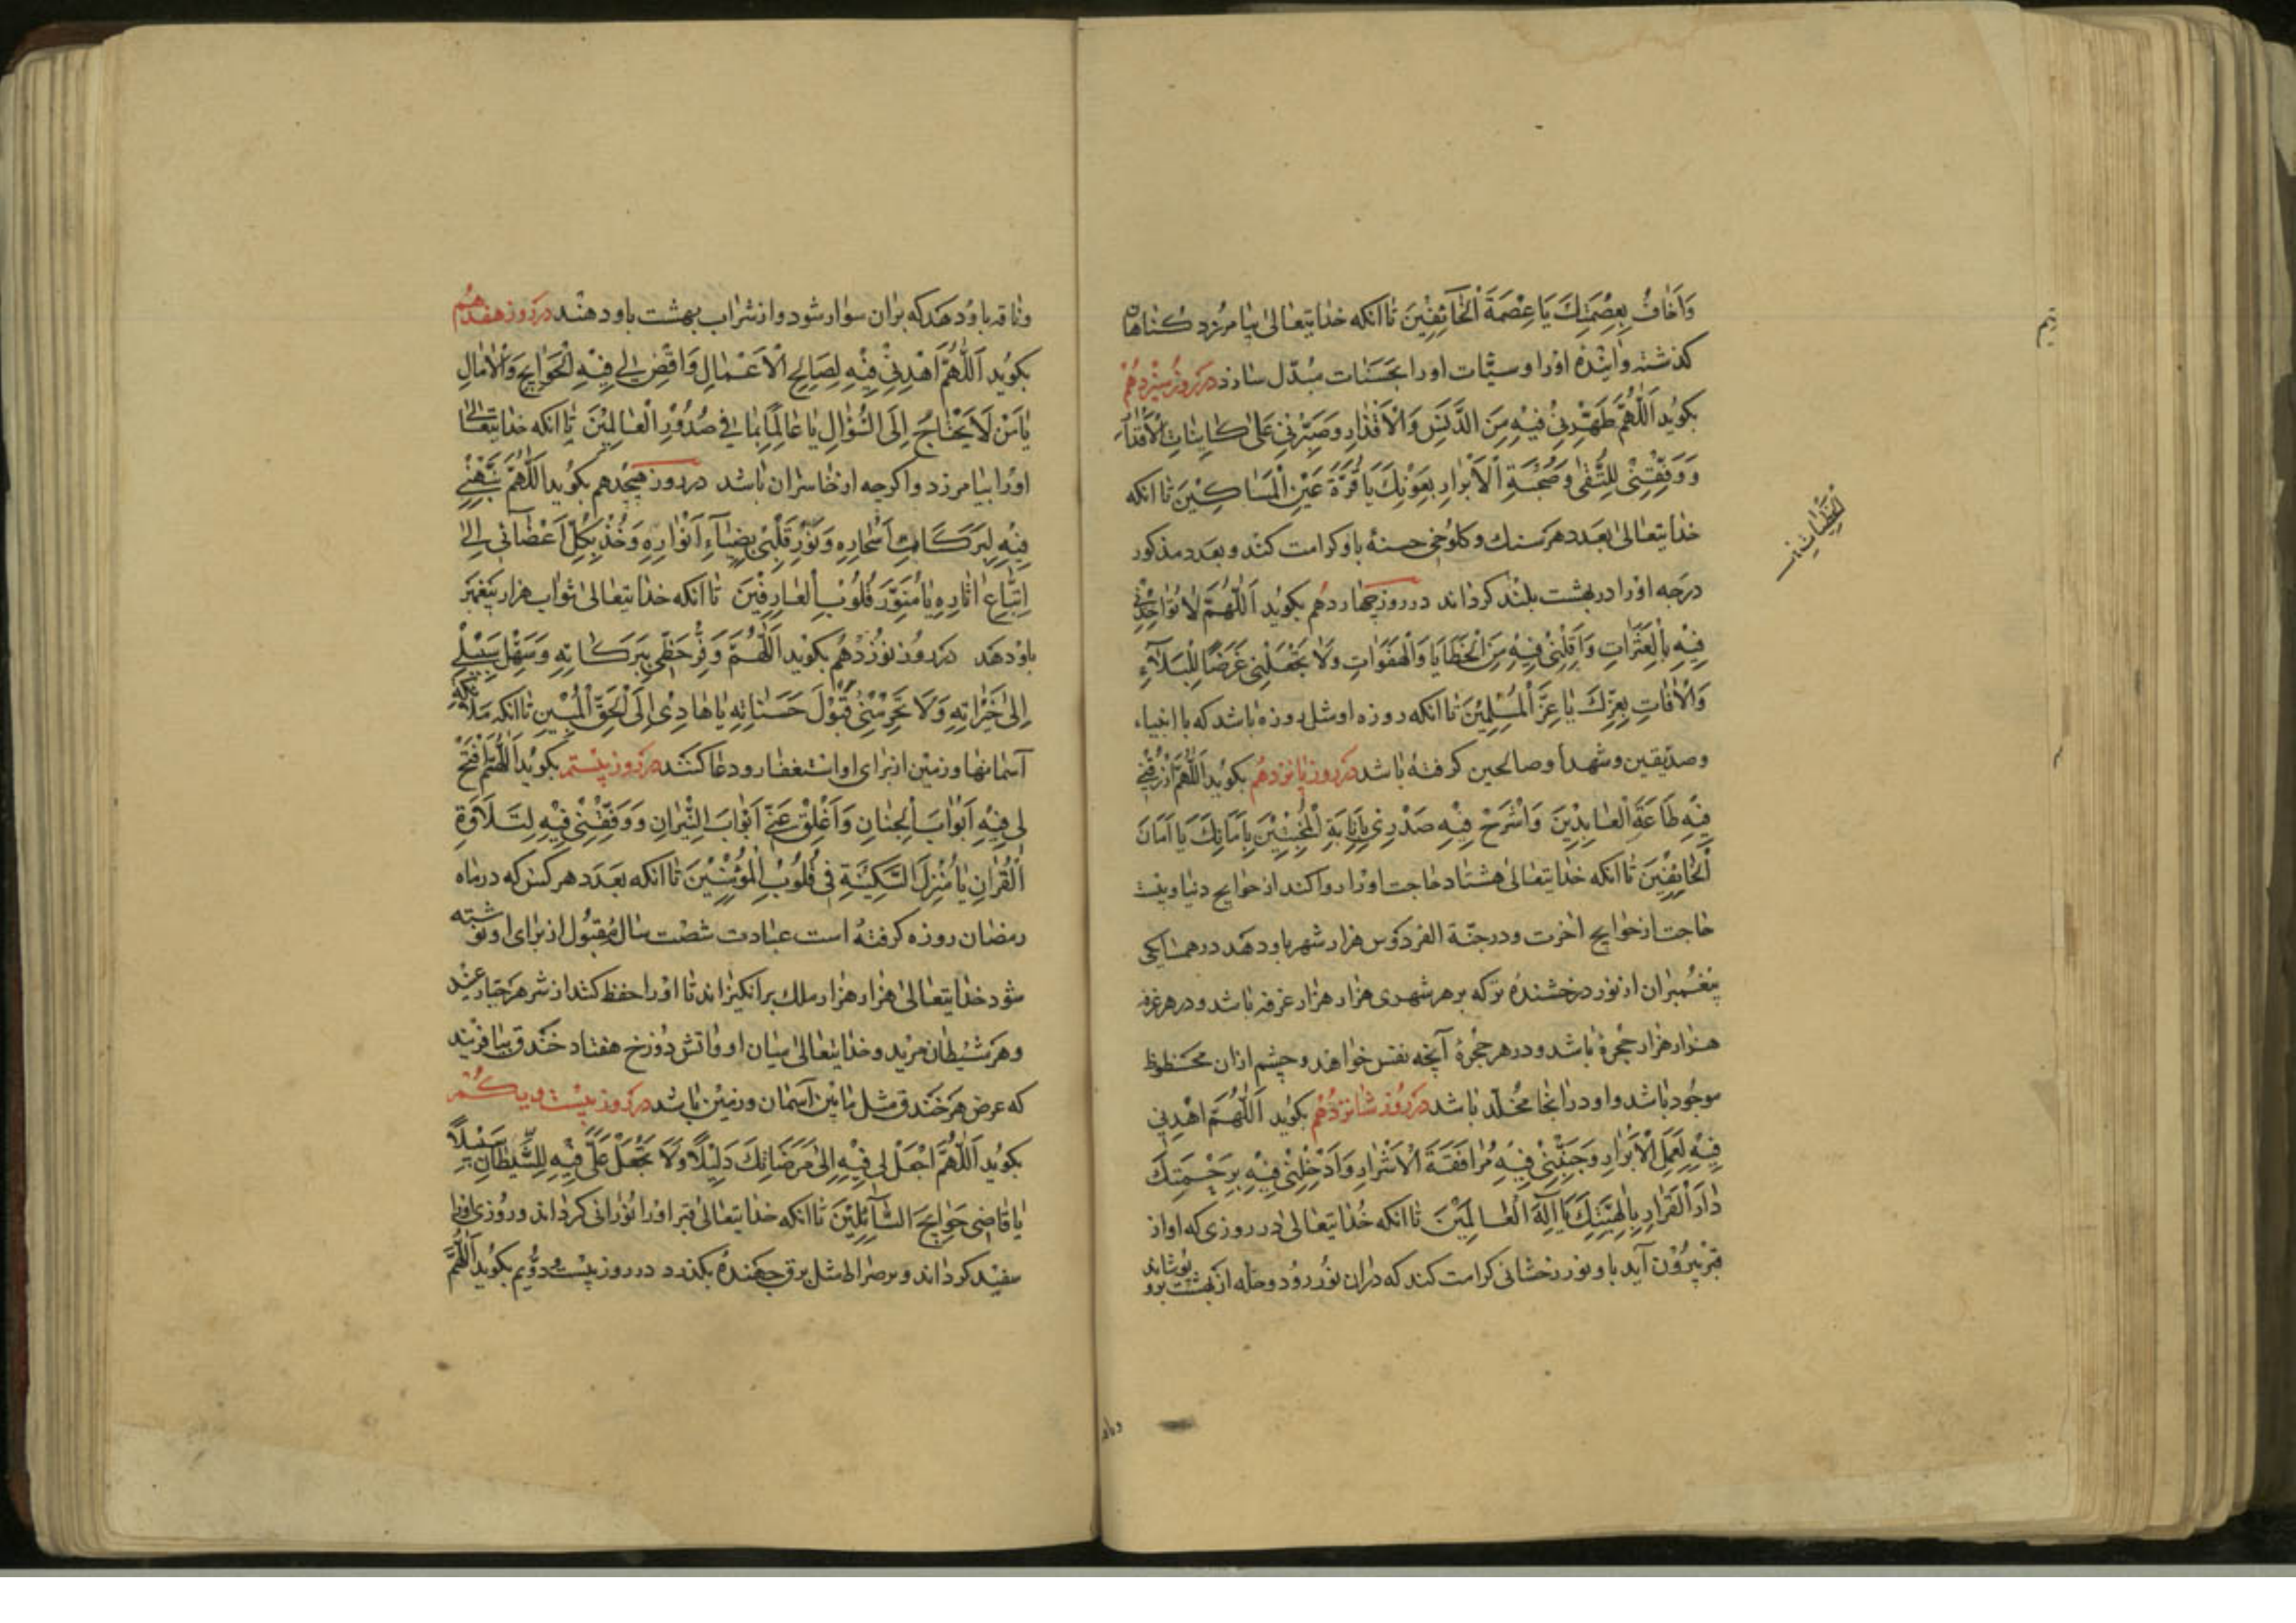 وَاَخافُ بِعِصْمَتِكَ يَا عِصْمَةَ اْلخَآئِفِيْنَ تا آنكه خدايتعالى بيامرزد كناهان
كذشته وآينده اورا وسيّئات اورا بحَسَنات مبدّل سازد در روز سيزدهم
بكويد اَللّٰهُمَّ طَهِّرْنِىْ فِيْهِ مِنَ الدَّنَسِ وَالْاَقْذارِ وَصَبِّرْنِىْ عَلىٰ كائِناتِ الْاَقْدارِ
وَوَفِّقْنِىْ لِلتُّقٰى وَصُحْبَةِ الْاَبْرارِ بِعَوْنِكَ يا قُرَّةَ عَيْنِ الْمَساكِيْنَ تا آنكه
خدايتعالى بعدد هر سنك وكلوخى حسنهٔ باو كرامت كند وبعدد مذكور
درجه اورا در بهشت بلند كرداند در روز چهاردهم بكويد اَللّٰهُمَّ لا تُؤاخِذْنِىْ
فِيْهِ بِالْعَثَراتِ وَاَقِلْنِىْ فِيْهِ مِنَ الْخَطايَا وَالْهَفَواتِ وَلا تَجْعَلْنِى غَرَضًا لِلْبَلَآءِ
وَالْاٰفاتِ بِعِزِّكَ يا عِزَّ الْمُسْلِمِيْنَ تا آنكه روزه او مثل روزه باشد كه با انبياء
وصدّيقين وشهدا وصالحين كرفته باشد در روز پانزدهم بكويد اَللّٰهُمَّ ارْزُقْنِىْ
فِيْهِ طاعَةَ الْعابِدِيْنَ وَاشْرَحْ فِيْهِ صَدْرِىْ بِاِنابَةِ الْمُخْبِتِيْنَ بِاَمانِكَ يا اَمانَ
الْخائِفِيْنَ تا آنكه خدايتعالى هشتاد حاجت اورا روا كند از حوايج دنيا وبيست
حاجت از حوايج آخرت ودر جنّة الفردوس هزار شهر باو دهد در همسايكى
پيغمبران از نور درخشنده تر كه بر هر شهرى هزار هزار غرفه باشد ودر هر غرفه
هزار هزار حجرهٔ باشد ودر هر حجرهٔ آنچه نفس خواهد وچشم ازان محظوظ
موجود باشد واو درانجا مخلّد باشد در روز شانزدهم بكويد اَللّٰهُمَّ اهْدِنِى
فِيْهِ لِعَمَلِ الْاَبْرارِ وَجَنِّبْنِىْ فِيْهِ مُرافَقَةَ الْاَشْرارِ وَاَدْخِلْنِىْ فِيْهِ بِرَحْمَتِكَ
دارَ الْقَرارِ بِاِلٰهِيَّتِكَ يا اِلٰهَ الْعالَمِيْنَ تا آنكه خدايتعالى در روزى كه او از
قبر بيرون آيد باو نور رخشانى كرامت كند كه دران نور رود وحله از بهشت برو پوشاند
وناقه باو دهد كه بران سوار شود واز شراب بهشت باو دهند در روز هفدهم
بكويد اَللّٰهُمَّ اهْدِنِىْ فِيْهِ لِصالِحِ الْاَعْمالِ وَاقْضِ لِى فِيْهِ الْحَوايِجَ وَالْاٰمالِ
يا مَنْ لا يَحْتاجُ اِلَى السُّؤالِ يا عالِمًا بِما فِى صُدُوْرِ الْعالَمِيْنَ تا آنكه خدايتعالى
اورا بيامرزد واكرچه از خاسران باشد در روز هيجدهم بكويد اَللّٰهُمَّ نَبِّهْنِى
فِيْهِ لِبَرَكاتِ اَسْحارِهِ وَنَوِّرْ قَلْبِىْ بِضِيآءِ اَنْوارِهِ وَخُذْ بِكُلِّ اَعْضائِى اِلىٰ
اِتِّباعِ اٰثارِهِ يا مُنَوِّرَ قُلُوْبِ الْعارِفِيْنَ تا آنكه خدايتعالى ثواب هزار پيغمبر
باو دهد در روز نوزدهم بكويد اَللّٰهُمَّ وَفِّرْ حَظِّى بِبَرَكاتِهِ وَسَهِّلْ سَبِيْلِى
اِلىٰ خَيْراتِهِ وَلا تَحْرِمْنِىْ قَبُوْلَ حَسَناتِهِ يا هادِىْ اِلَى الْحَقِّ الْمُبِيْنِ تا آنكه ملائكه
آسمانها وزمين از براى او استغفار ودعا كنند در روز بيستم بكويد اَللّٰهُمَّ افْتَحْ
لِى فِيْهِ اَبْوابَ الْجِنانِ وَاَغْلِقْ عَنِّى اَبْوابَ النِّيْرانِ وَوَفِّقْنِىْ فِيْهِ لِتِلاوَةِ
الْقُرْاٰنِ يا مُنْزِلَ السَّكِيْنَةِ فِى قُلُوْبِ الْمُؤْمِنِيْنَ تا آنكه بعدد هر كس كه در ماه
رمضان روزه كرفته است عبادت شصت سال مقبول از براى او نوشته
شود خدايتعالى هزار هزار ملك برانكيزاند تا اورا حفظ كند از شر هر جبار عنيد
وهر شيطان مريد وخدايتعالى ميان او وآتش دوزخ هفتاد خندق بيافريند
كه عرض هر خندق مثل مابين آسمان وزمين باشد در روز بيست ويكم
بكويد اَللّٰهُمَّ اجْعَلْ لِى فِيْهِ اِلىٰ مَرَضاتِكَ دَلِيْلًا وَلا تَجْعَلْ عَلَىَّ فِيْهِ لِلشَّيْطانِ سَبِيْلًا
يا قاضِىَ حَوايِجِ السَّآئِلِيْنَ تا آنكه خدايتعالى قبر اورا نورانى كرداند وروزى اورا
سفيد كرداند وبر صراط مثل برق جهنده بكذرد در روز بيست ودويم بكويد اَللّٰهُمَّ